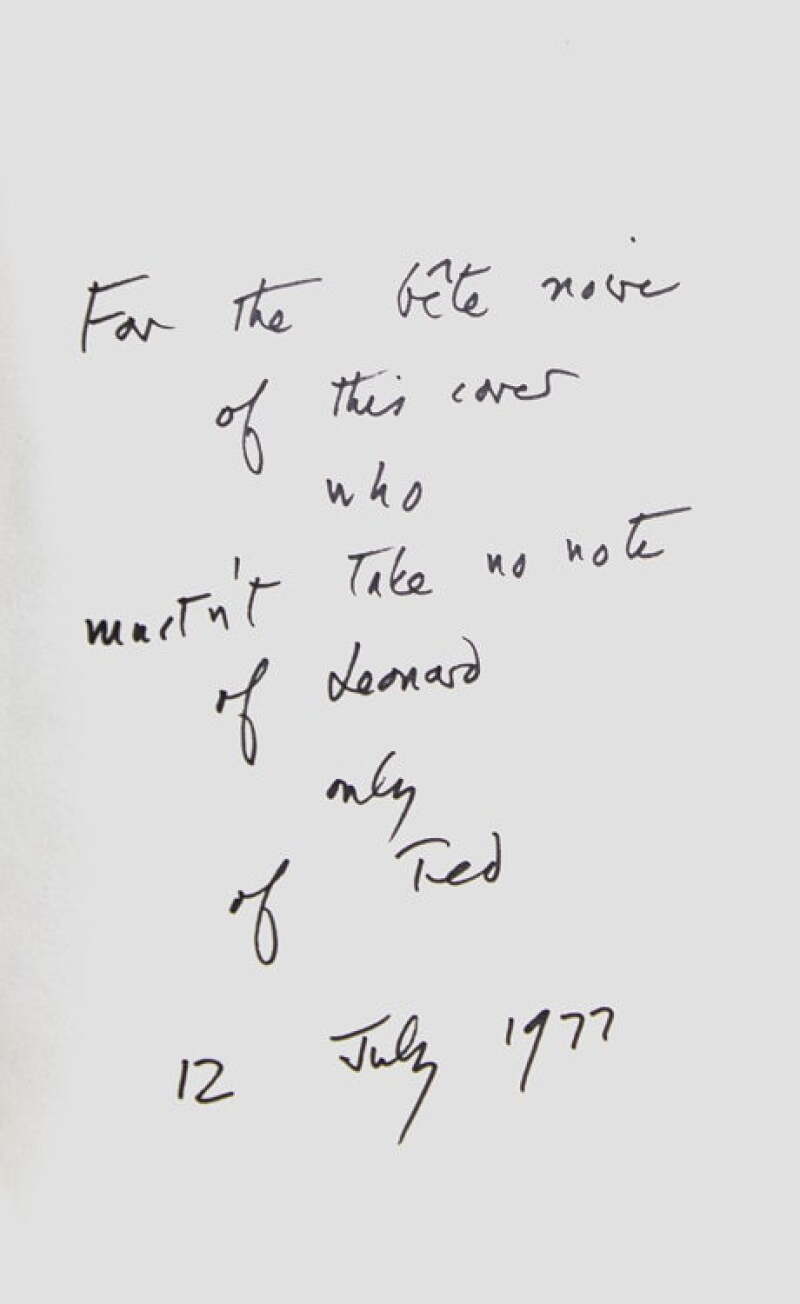 For the bête noire
of this cover
who
mustn't Take no note
of Leonard
only
of Ted
12 July 1977